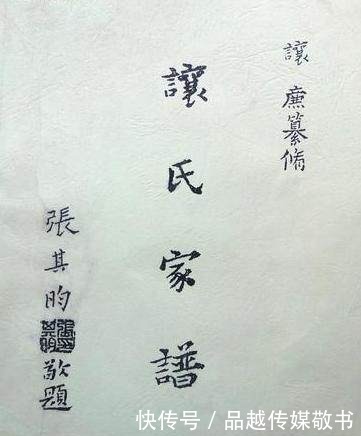 讓廡纂脩
讓氏家譜
張其昀敬題
快传号/品越传媒敬书